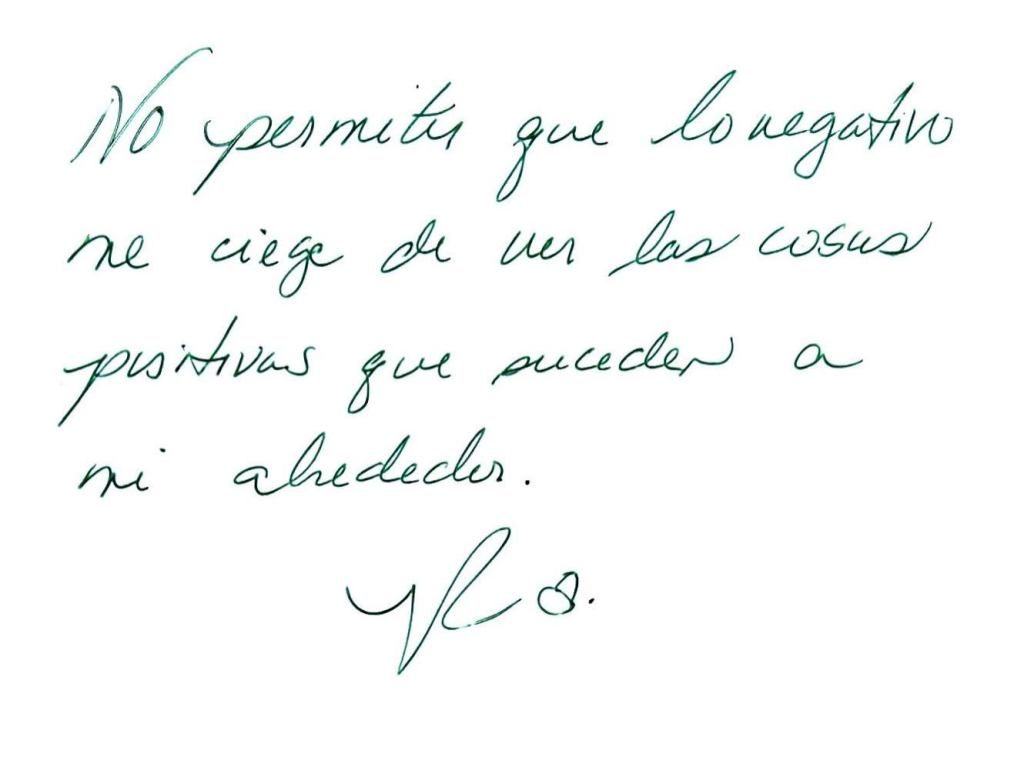 No permitir que lo negativo
me ciege de ver las cosas
positivas que suceden a
mi alrededor.